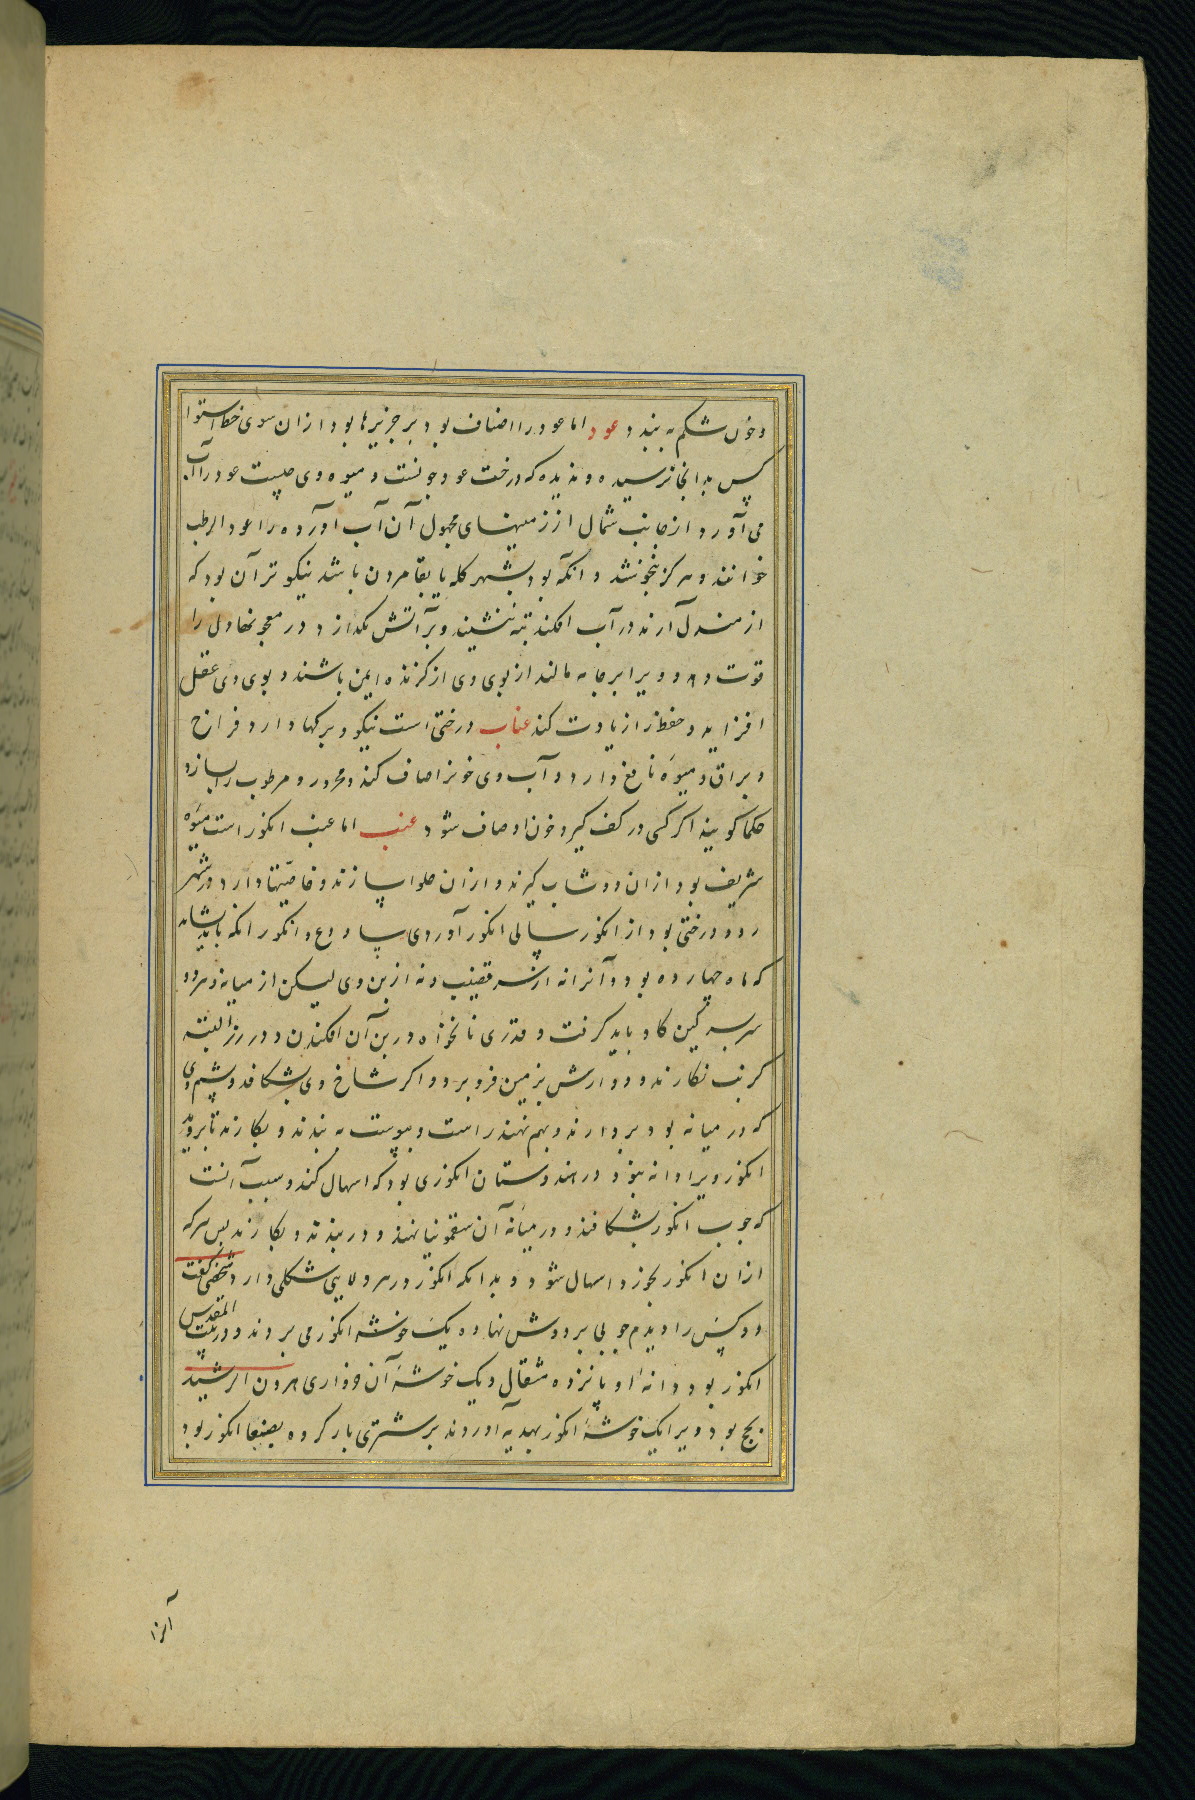 و خون شکم به بندد عود اما عود را اصناف بود بر جزیرها بود از ان سوی خط استوا
کس بدانجا نرسیده و ندیده که درخت عود چونست و میوه وی چیست عود را آب
می آورد از جانب شمال از زمینهای مجهول آن آب آورده را عود الرطب
خوانند و هرگز نجوشد و انکه بود بشهر کله یا بقامرون باشد نیکوتر آن بود که
از مندل آرند در آب افکند بته نشیند و بر آتش بگدازد در معجونها دل را
قوت دهد و ویرا بر جامه مالند از بوی وی از گزنده ایمن باشند و بوی وی عقل
افزاید و حفظ را زیادت کند عناب درختی است نیکو و برکها دارد فراخ
و براق و میوه نافع دارد و آب وی خونرا صاف کند و محرور و مرطوب را بسازد
حکما کویند اکر کسی در کف کیرد خون او صاف شود عنب اما عنب انکور است میوه
شریف بود از ان دوشاب کیرند و از ان حلوا سازند و خاصیتها دارد در شهر
رود درختی بود از انکور سالی انکور آوردی و انکور انکه باید نشاند
که ماه چهارده بود و آنرا نه از سر قضیب و نه از بن وی لیکن از میانه و هر دو
سر بسرکین کاو باید کرفت و قدری نانخواه در بن آن افکندن و در رز البته
کرنب نکارند و دو ارش بزمین فرو برد و اکر شاخ وی بشکافد و شم وی
که در میانه بود بردارند و بهم نهند راست و بپوست به بندند و بکارند تا بروید
انکور ویرا دانه نبود در هندوستان انکوری بود که اسهال کند و سبب آنست
که چوب انکور بشکافند و در میانه آن سقمونیا نهند و در بندند و بکارند پس هر که
از ان انکور بخورد اسهال شود و بدانکه انکور در هر ولایتی شکلی دارد شخصی گفت
دو کس را دیدم چوبی بر دوش نهاده یک خوشه انکور می بردند و در بیت المقدس
انکور بود دانه او پانزده مثقال و یک خوشه آن خرواری هرون الرشید
بحج بود ویرا یک خوشه انکور بهدیه آوردند بر شتری بار کرده بصنعا انکور بود
آنرا